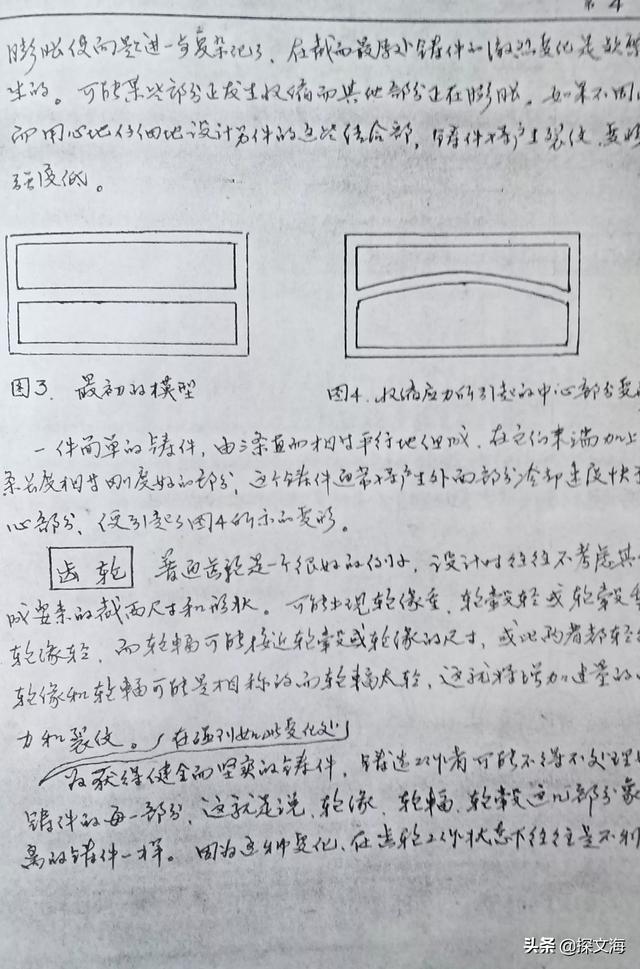 第 4
膨胀使问题进一步复杂化了。在截面最厚处铸件的激烈变化是
生的。可能某些部分正发生收缩而其他部分正在膨胀。如果不
而用心地仔细地设计另件的这些结合部，铸件将产生裂纹、变形
强度低。
图3. 最初的模型
图4. 收缩应力所引起的中心部分变
一件简单的铸件，由三条直的相对平行地组成，在它们末端加上
条长度相等刚度好的部分，这个铸件通常将产生外面部分冷却速度快于
心部分，便引起了图4所示的变形。
齿轮 普通齿轮是一个很好的例子，设计时往往不考虑其
成要素的截面尺寸和形状。可能出现轮缘重，轮毂轻或轮毂重
轮缘轻，而轮辐可能接近轮毂或轮缘的尺寸，或比两者都轻
轮缘和轮辐可能是相称的而轮辐太轻，这就将增加大量的
力和裂纹。在遇到如此变化处
为获得健全而坚实的铸件，铸造工作者可能不得不处理
铸件的每一部分，这就是说，轮缘、轮辐、轮毂这几部分象
离的铸件一样。因为这种变化，在齿轮工作状态下往往是不利
头条 @探文海